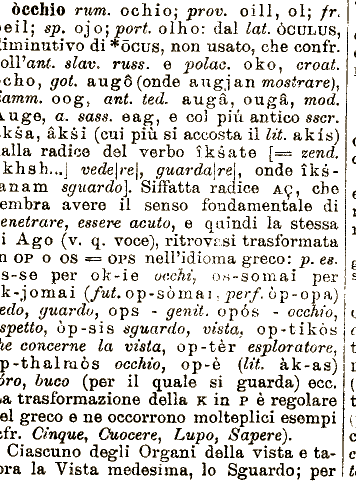 òcchio rum. ochio; prov. oill, ol; fr.
eil; sp. ojo; port. olho: dal lat. ÒCULUS,
iminutivo di *ÒCUS, non usato, che confr.
oll'ant. slav. russ. e polac. oko, croat.
cho, got. augô (onde augjan mostrare),
amm. oog, ant. ted. augâ, ougâ, mod.
uge, a. sass. eag, e col più antico sscr.
kša, âkši (cui più si accosta il lit. akís)
alla radice del verbo îkšate [= zend.
khsh...] vede|re|, guarda|re|, onde îkš-
anam sguardo]. Siffatta radice AÇ, che
embra avere il senso fondamentale di
enetrare, essere acuto, e quindi la stessa
i Ago (v. q. voce), ritrovasi trasformata
n OP o OS = OPS nell'idioma greco: p. es.
s-se per ok-ie occhi, os-somai per
k-jomai (fut. op-sòmai, perf. òp-opa)
edo, guardo, ops - genit. opós - occhio,
spetto, òp-sis sguardo, vista, op-tikòs
he concerne la vista, op-tèr esploratore,
p-thalmòs occhio, op-è (lit. àk-as)
òro, buco (per il quale si guarda) ecc.
a trasformazione della K in P è regolare
el greco e ne occorrono molteplici esempi
cfr. Cinque, Cuocere, Lupo, Sapere).
Ciascuno degli Organi della vista e ta-
ora la Vista medesima, lo Sguardo; per